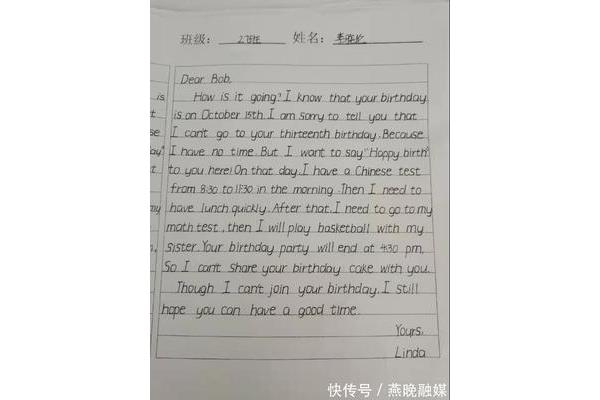 班级： 姓名：
Dear Bob,
How is it going? I know that your birthday
is on October 15th. I am sorry to tell you that
I can't go to your thirteenth birthday. Because
I have no time. But I want to say "Happy birth"
to you here! On that day. I have a Chinese test
from 8:30 to 11:30 in the morning. Then I need to
have lunch quickly. After that. I need to go to my
math test, then I will play basketball with my
sister. Your birthday party will end at 4:30 pm.
So I can't share your birthday cake with you.
Though I can't join your birthday. I still
hope you can have a good time.
Yours,
Linda
is
t
se
ay"
t
my
n.
快传号／燕晚融媒